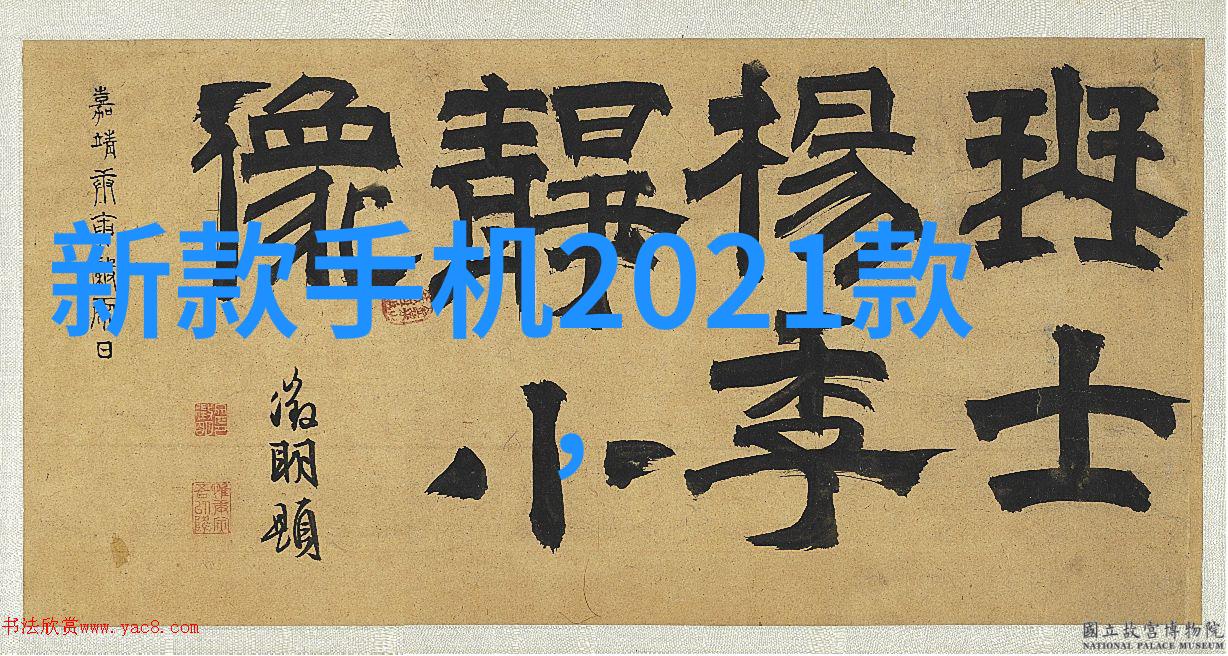 士
楊季
靜小
像
嘉靖庚寅
日
徵明題
新款手机2021款
,
书法欣赏www.yac8.com
國立故宮博物院
NATIONAL PALACE MUSEUM